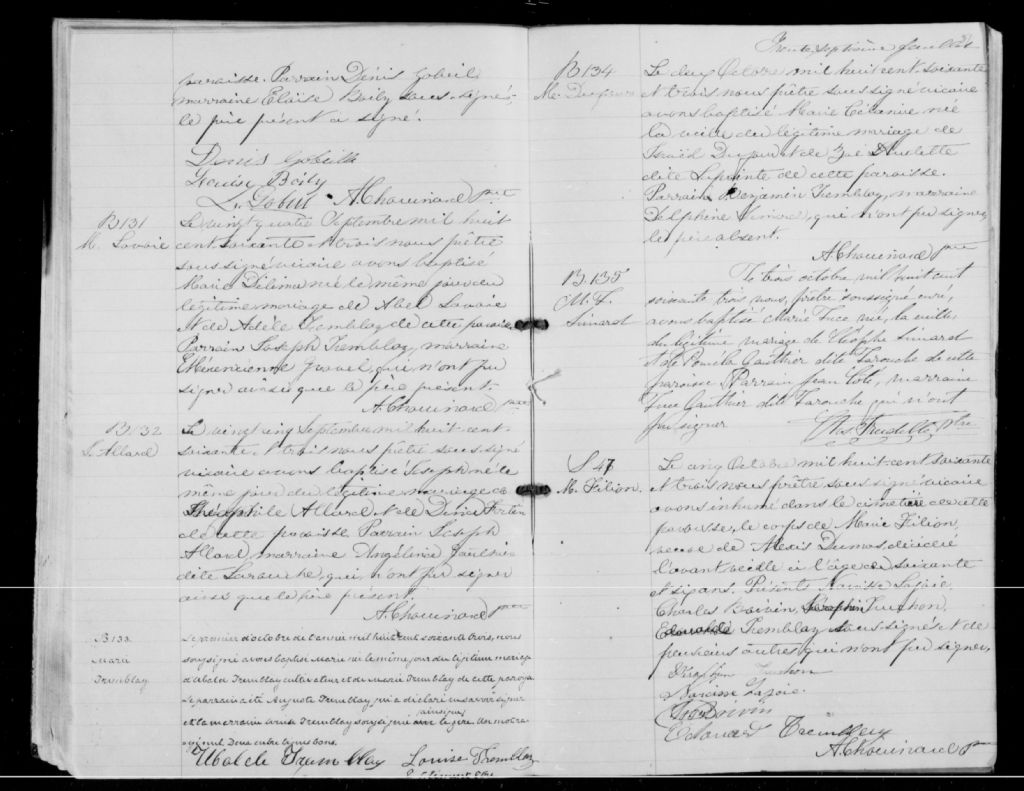 paroisse. Parrain Denis Gobeil,
marraine Eloïse Boily sous-signés.
le père présent a signé.
Denis Gobeille
Boily
A Chouinard ptre
B131
M. Lavoie
Le vingt quatre Septembre mil huit
cent soixante et trois nous prêtre
sous signé vicaire avons baptisé
Marie Délima née le même jour du
légitime mariage de Abel Lavoie
et de Adèle Tremblay de cette paroisse
Parrain Joseph Tremblay, marraine
Gravel, qui n'ont pu
signer ainsi que le père présent.
A. Chouinard ptre
B132
Allard
Le vingt cinq Septembre mil huit-cent-
soixante et trois nous prêtre sous-signé
vicaire avons baptisé Joseph né le
même jour du légitime mariage de
Théophile Allard et de Fortin
de cette paroisse Parrain Joseph
Allard, marraine Angélina Gauthier
dite Larouche, qui n'ont pu signer
ainsi que le père présent.
A. Chouinard ptre
B133
Marie
Tremblay
Le premier d'octobre de l'année mil huit cent soixante trois, nous
soussigné avons baptisé Marie née le même jour du légitime mariage
d'Ubalde Tremblay cultivateur et de Marie Tremblay de cette paroisse
le parrain a été Auguste Tremblay qui a déclaré ne savoir signer
et la marraine Louise Tremblay soussignée avec le père
ainsi que
Ubalde Tremblay Louise Tremblay
Trente septième feuillet
B134
M. Dufour
Le deux Octobre mil huit cent-soixante
et trois nous prêtre sous signé vicaire
avons baptisé Marie née
la veille du légitime mariage de
Israël Dufour et de Zoé Audette
dite Lapointe de cette paroisse.
Parrain Benjamin Tremblay, marraine
Delphine Simard, qui n'ont pu signer,
le père absent.
A Chouinard ptre
B.135
M. L.
Simard
Le trois octobre mil huit cent
soixante trois, nous, prêtre soussigné curé,
avons baptisé Marie Luce née, la veille,
du légitime mariage de Cléophe Simard
et de Gauthier dite Larouche de cette
paroisse Parrain Jean Coté, marraine
Luce Gauthier dite Larouche qui n'ont
pu signer
Trudelle, Ptre
S 47
M. Filion.
Le cinq Octobre mil huit-cent soixante
et trois nous prêtre sous signé vicaire
avons inhumé dans le cimetière de cette
paroisse, le corps de Marie Filion,
veuve de Alexis Dumas, décédée
l'avant veille à l'âge de soixante
et six ans. Présents Narcisse Lajoie,
Charles Boivin, Séraphin Truchon,
Edouard Tremblay sous-signés et de
plusieurs autres qui n'ont pu signer.
Séraphin Truchon
Narcisse Lajoie.
Boivin
Edouard Tremblay
A. Chouinard Ptre